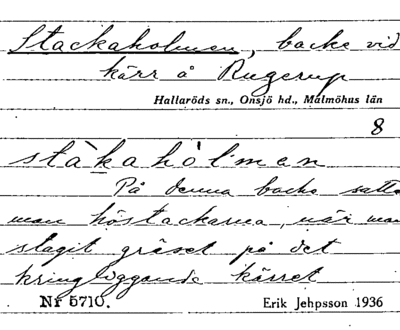 Stackaholmen, backe vid
kärr å Rugerup
Hallaröds sn., Onsjö hd., Malmöhus län
8
stàkahólmen
På denna backe satte
man höstackarna, när man
slagit gräset på det
kringliggande kärret
Nr 5710. Erik Jehpsson 1936